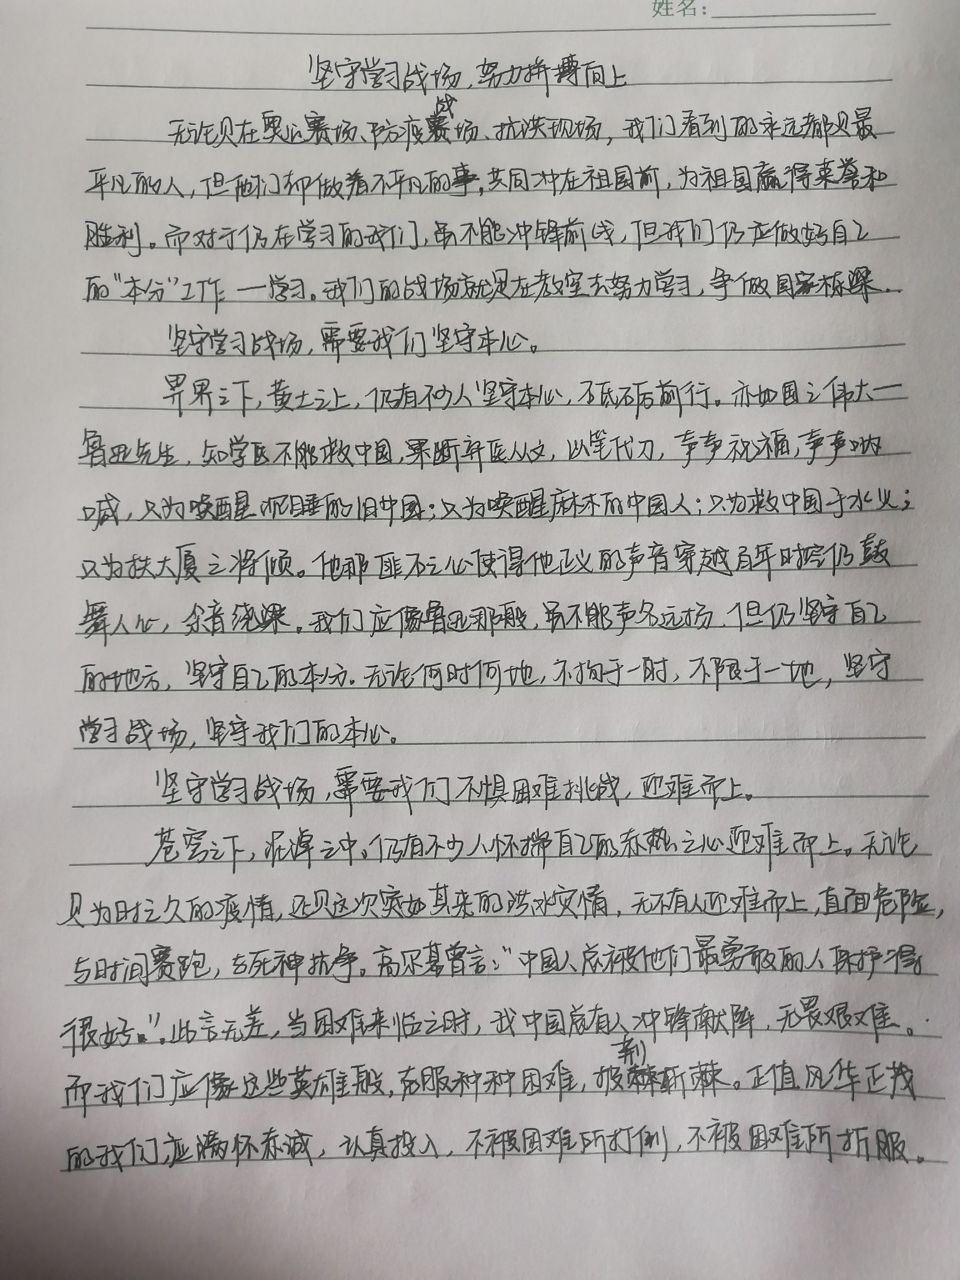 姓名:
坚守学习战场,努力拼搏向上
无论是在奥运赛场、防疫战场、抗洪现场,我们看到的永远都是最
平凡的人,但他们却做着不平凡的事,共同冲在祖国前,为祖国赢得荣誉和
胜利。而对于仍在学习的我们,虽不能冲锋前线,但我们仍应做好自己
的“本分”工作一学习。我们的战场就是在教室去努力学习,争做国家栋梁.
坚守学习战场,需要我们坚守本心。
界之下,黄土之上,仍有不少人坚守本心,不前行。亦如国之伟大一
鲁迅先生,知学医不能救中国,果断弃医从文,以笔代刀,声声祝福,声声呐
喊,只为唤醒沉睡的旧中国;只为唤醒麻木的中国人;只为救中国于水火;
只为扶大厦之将倾。他那匪石之心使得他正义的声音穿越百年时空仍鼓
舞人心,余音绕梁。我们应像鲁迅那般,虽不能声名远扬,但仍坚守自己
的地方,坚守自己的本分.无论何时何地,不拘于一时,不限于一地,坚守
学习战场,坚守我们的本心。
坚守学习战场,需要我们不惧困难挑战,迎难而上。
苍穹之下,泥淖之中,仍有不少人怀揣自己的赤热之心迎难而上。无论
是为时之久的疫情,还是这次突如其来的洪水灾情,无不有人迎难而上,直面危险,
与时间赛跑,与死神抗争。高尔基曾言:“中国人总被他们最勇敢的人保护得
很好。”此言无差,当困难来临之时,我中国总有人冲锋献阵,无畏艰难。
而我们应像这些英雄般,克服种种困难,披荆斩棘。正值风华正茂
的我们,应满怀赤诚,认真投入,不被困难所打倒,不被困难所折服。